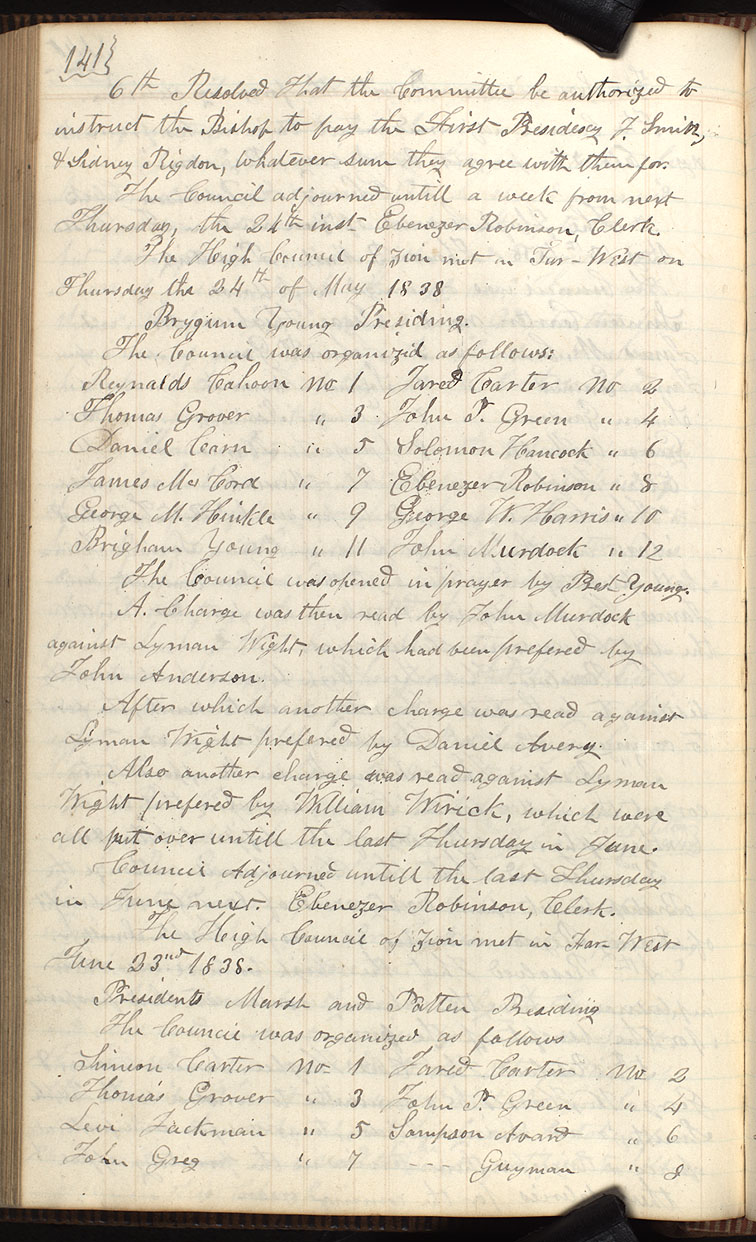 141}
6th Resolved That the Committee be authorized to
instruct the Bishop to pay the First Presidency J. Smith,
& Sidney Rigdon, whatever sum they agree with them for.
The Council adjourned untill a week from next
Thursday, the 24th inst. Ebenezer Robinson, Clerk.
The High Council of Zion met in Far-West on
Thursday the 24th of May 1838
Brygum Young Presiding.
The Council was organized as follows:
Reynalds Cahoon No 1 Jared Carter No 2
Thomas Grover " 3 John P. Green " 4
Daniel Carn " 5 Solomon Hancock " 6
James McCord " 7 Ebenezer Robinson " 8
George M. Hinkle " 9 George W. Harris " 10
Brigham Young " 11 John Murdock " 12
The Council was opened in prayer by Prest Young.
A. Charge was then read by John Murdock
against Lyman Wight, which had been prefered by
John Anderson.
After which another charge was read against
Lyman Wight prefered by Daniel Avery.
Also another charge was read against Lyman
Wight prefered by William Wirick, which were
all put over untill the last Thursday in June.
Council Adjourned untill the last Thursday
in June next Ebenezer Robinson, Clerk.
The High Council of Zion met in Far-West
June 23rd 1838.
Presidents Marsh and Patten Presiding
The Council was organized as follows
Simeon Carter No 1 Jared Carter No 2
Thomas Grover " 3 John P. Green " 4
Levi Jackman " 5 Sampson Avard " 6
John Greg " 7 --- Guyman " 8